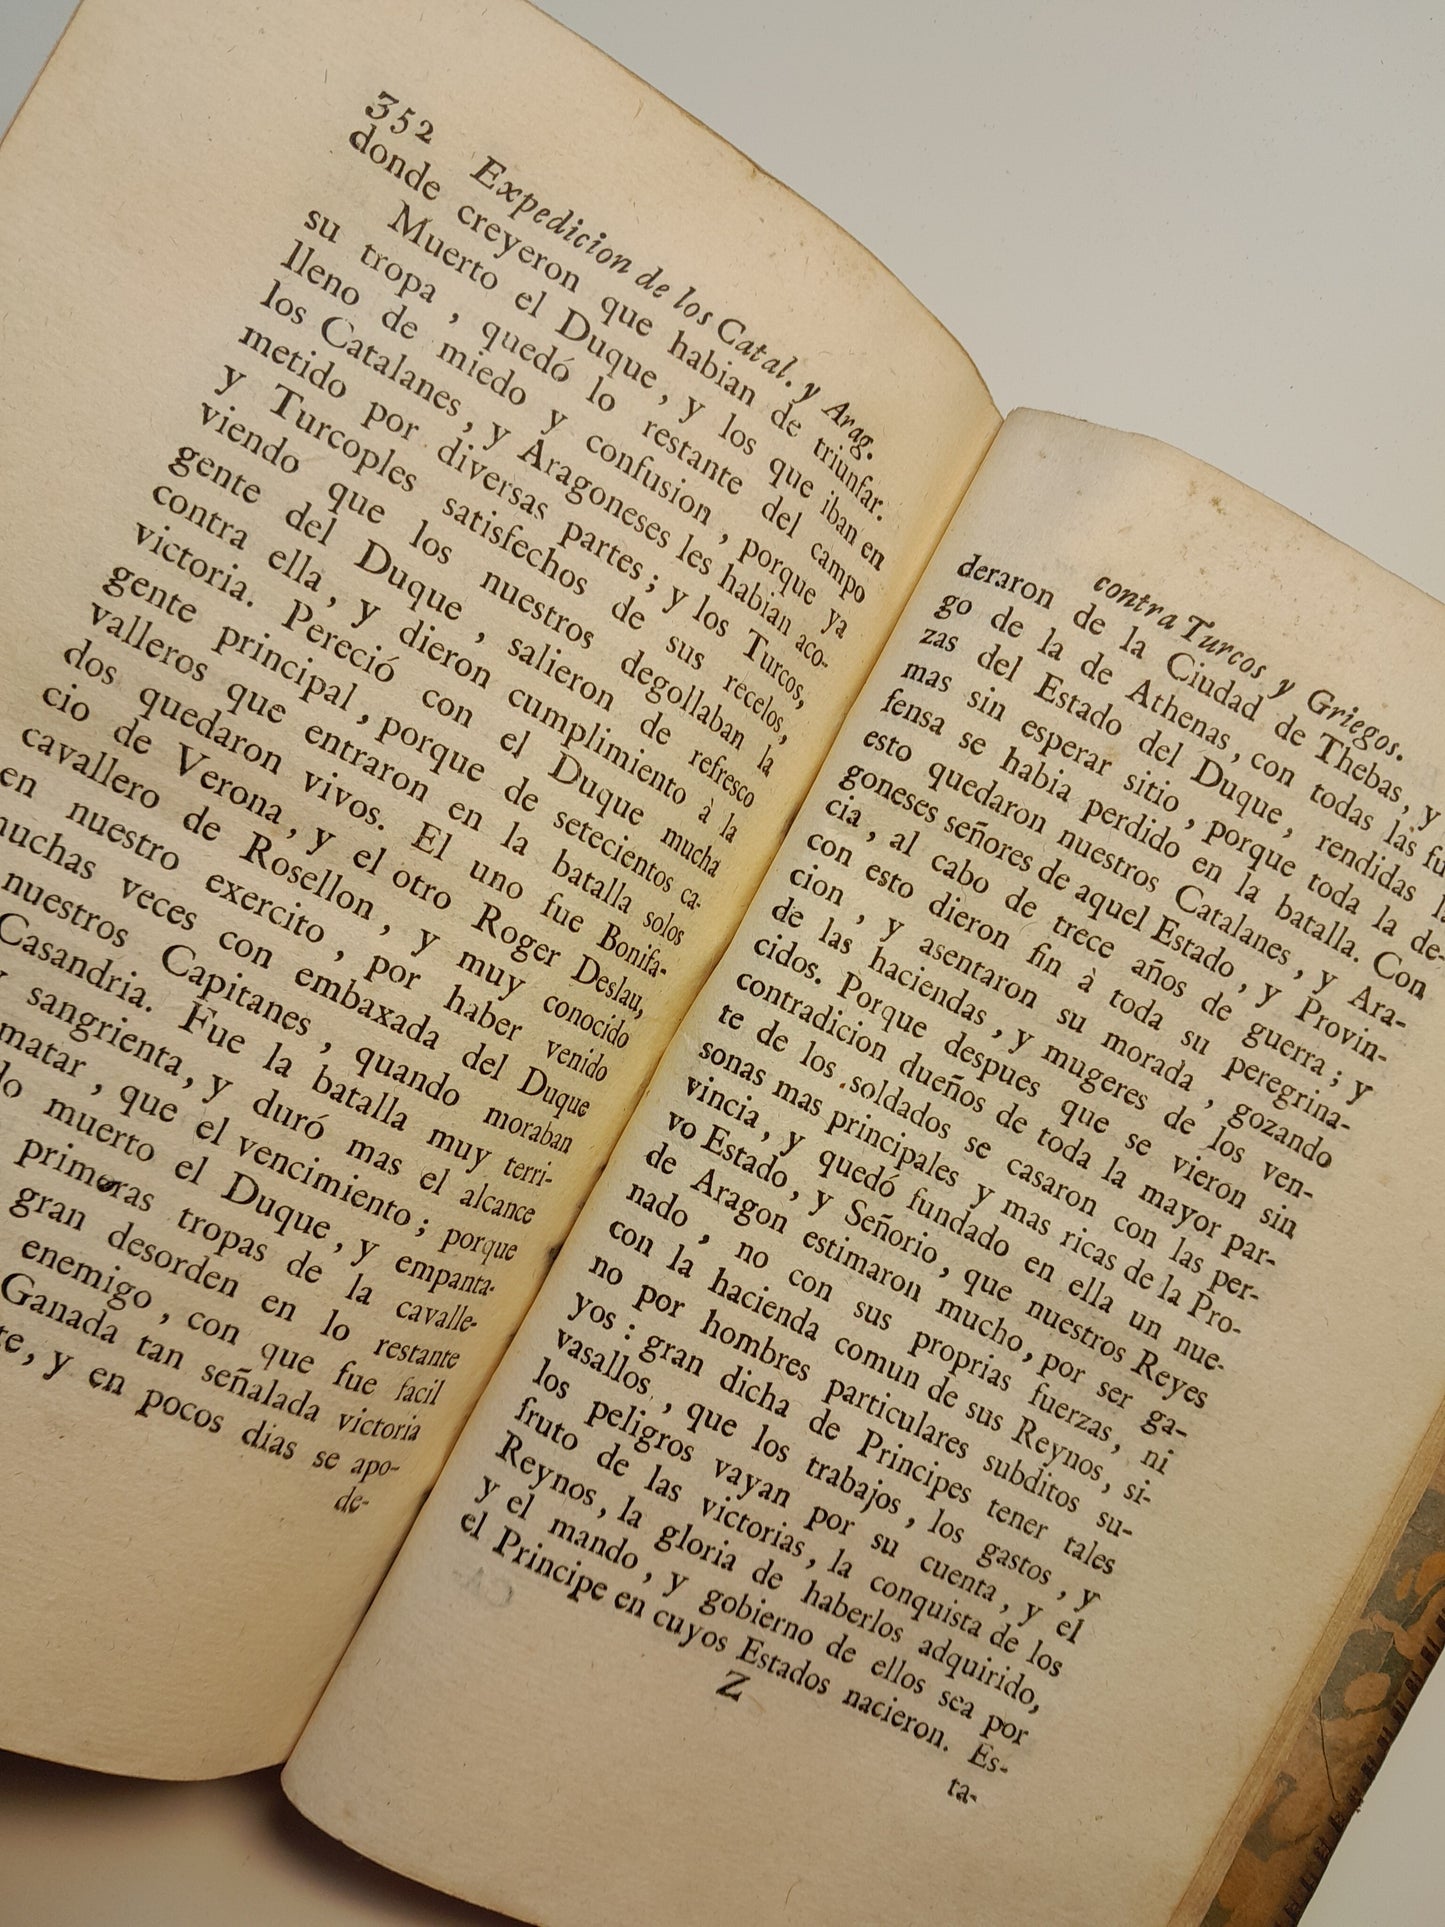 352 Expedicion de los Catal. y Arag.
donde creyeron que habian de triunfar.
Muerto el Duque, y los que iban en
su tropa, quedó lo restante del campo
lleno de miedo y confusion, porque ya
los Catalanes, y Aragoneses les habian aco-
metido por diversas partes; y los Turcos,
y Turcoples satisfechos de sus recelos,
viendo que los nuestros degollaban la
gente del Duque, salieron de refresco
contra ella, y dieron cumplimiento à la
victoria. Pereció con el Duque mucha
gente principal, porque de setecientos ca-
valleros que entraron en la batalla solos
dos quedaron vivos. El uno fue Bonifa-
cio de Verona, y el otro Roger Deslau,
cavallero de Rosellon, y muy conocido
en nuestro exercito, por haber venido
muchas veces con embaxada del Duque
nuestros Capitanes, quando moraban
Casandria. Fue la batalla muy terri-
y sangrienta, y duró mas el alcance
matar, que el vencimiento; porque
muerto el Duque, y empanta-
primeras tropas de la cavalle-
gran desorden en lo restante
enemigo, con que fue facil
Ganada tan señalada victoria
te, y en pocos dias se apo-
de-
contra Turcos y Griegos.
deraron de la Ciudad de Thebas, y
go de la de Athenas, con todas las
zas del Estado del Duque, rendidas
mas sin esperar sitio, porque toda la de-
fensa se habia perdido en la batalla. Con
esto quedaron nuestros Catalanes, y Ara-
goneses señores de aquel Estado, y Provin-
cia, al cabo de trece años de guerra; y
con esto dieron fin à toda su peregrina-
cion, y asentaron su morada, gozando
de las haciendas, y mugeres de los ven-
cidos. Porque despues que se vieron sin
contradicion dueños de toda la mayor par-
te de los soldados se casaron con las per-
sonas mas principales y mas ricas de la Pro-
vincia, y quedó fundado en ella un nue-
vo Estado, y Señorio, que nuestros Reyes
de Aragon estimaron mucho, por ser ga-
nado, no con sus proprias fuerzas, ni
con la hacienda comun de sus Reynos, si-
no por hombres particulares subditos su-
yos: gran dicha de Principes tener tales
vasallos, que los trabajos, los gastos, y
los peligros vayan por su cuenta, y el
fruto de las victorias, la conquista de los
Reynos, la gloria de haberlos adquirido,
y el mando, y gobierno de ellos sea por
el Principe en cuyos Estados nacieron. Es-
Z ta-